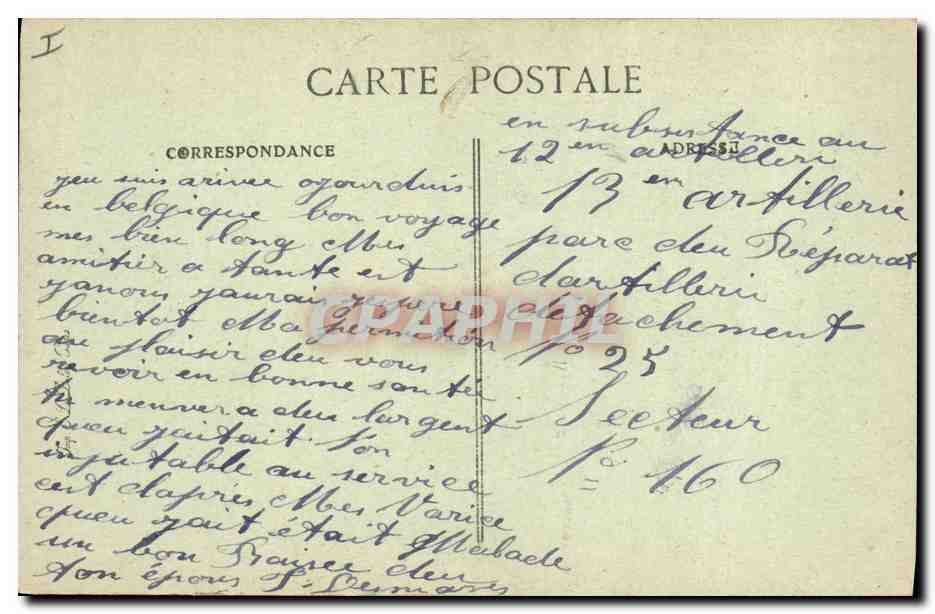 I
CARTE POSTALE
CORRESPONDANCE
ADRESSE
yeu suis arivee ojourduis
en belgique bon voyage
mes bien long Mes
amitier a tante est
yanous yaurai jespere
bientot Ma permition
au plaisir deu vous
revoir en bonne santéi
tu menvera deu largent
queu yaitait
inputable au service
cest daprés Mes Varice
queu yait était Malade
un bon Baisee deu
ton épous
en subsistance au
12 em artilleri
13 em artillerie
parc deu Réparat
dartilleri
détachement
No 25
Secteur
No 160
CPAPHIL